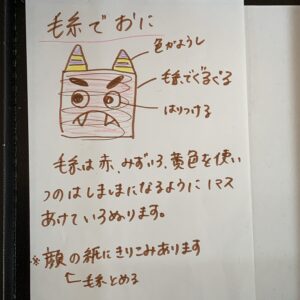 毛糸でおに
色がようし
毛糸でぐるぐる
はりつける
毛糸は赤、みずいろ、黄色を使い
つのはしましまになるように1マス
あけていろぬります。
※顔の紙にきりこみあります
毛糸とめる